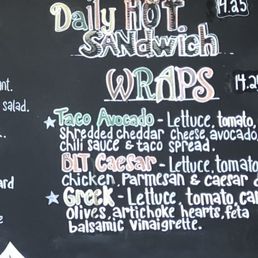 Daily HOT 14.25
SANDWICH
WRAPS 14.2
ant.
Taco Avocado - Lettuce, tomato,
salad.
shredded cheddar cheese, avocado
chili sauce & taco spread.
BLT Caesar - Lettuce, tomato
chicken, Parmesan & caesar d
ard
Greek - Lettuce, tomato, car
olives, artichoke hearts, feta
balsamic vinaigrette.